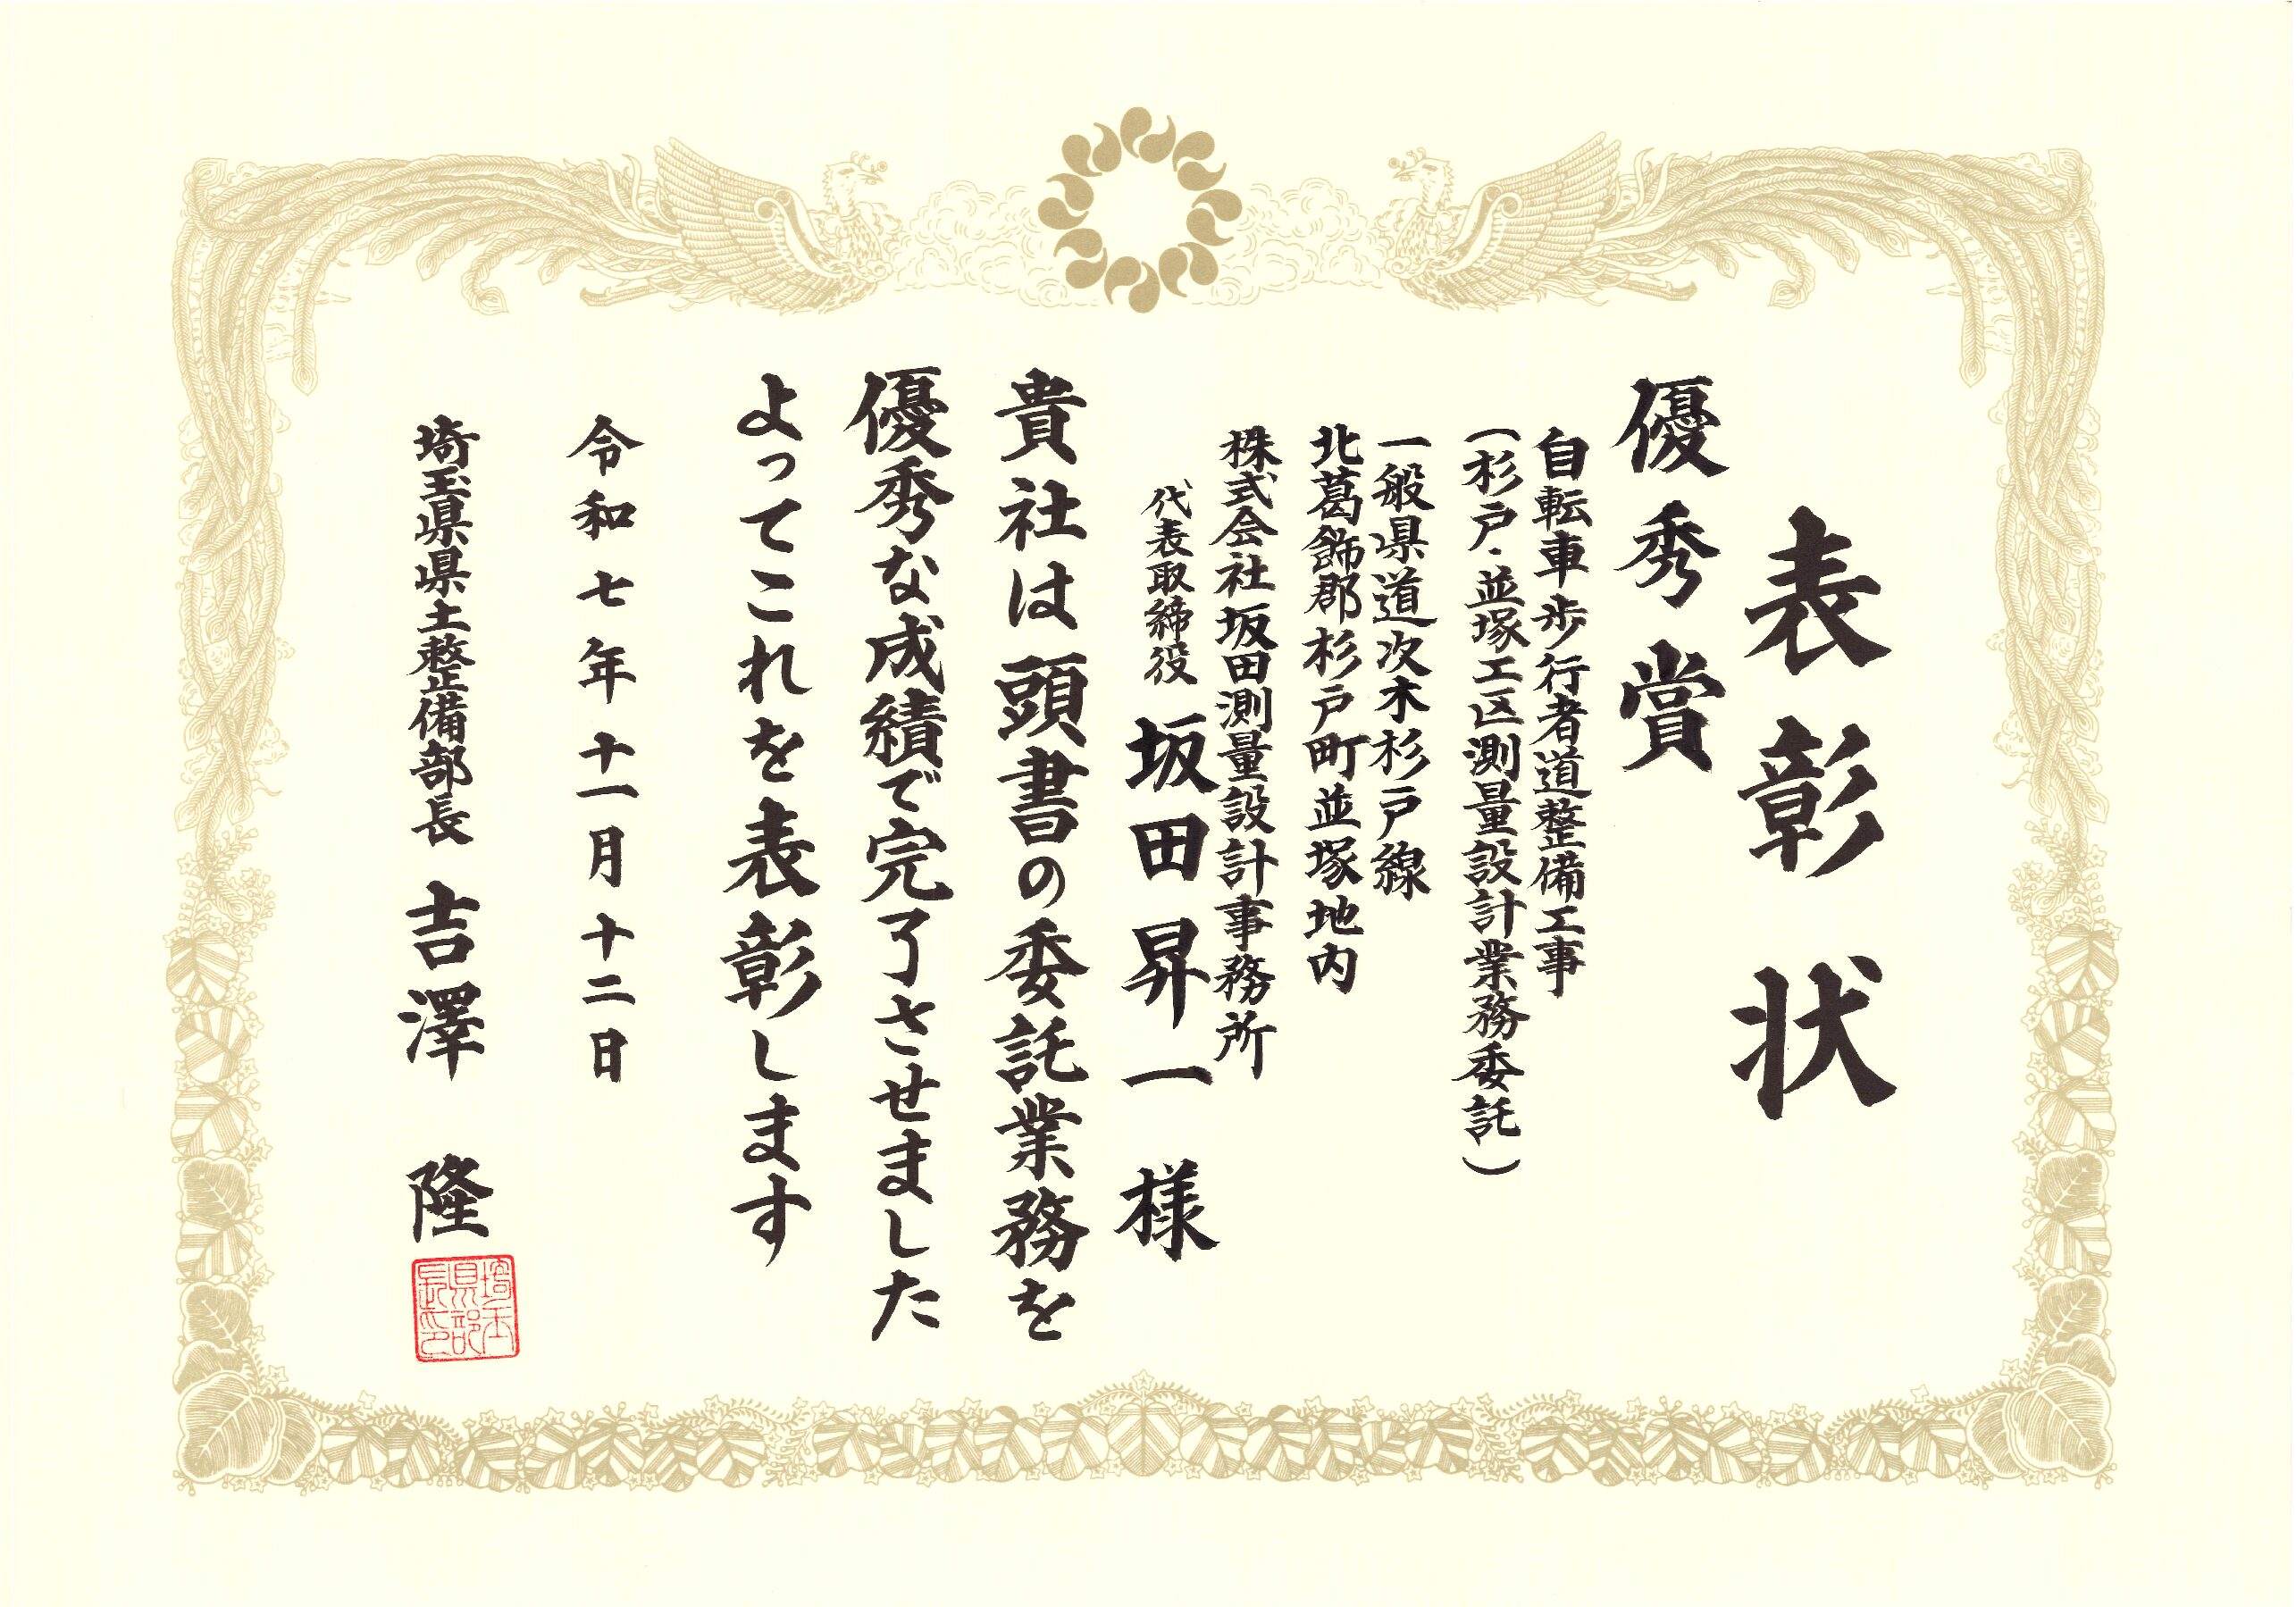 表彰状
優秀賞
自転車歩行者道整備工事
(杉戸・並塚工区測量設計業務委託)
一般県道次木杉戸線
北葛飾郡杉戸町並塚地内
株式会社坂田測量設計事務所
代表取締役 坂田昇一 様
貴社は頭書の委託業務を
優秀な成績で完了させました
よってこれを表彰します
令和七年十一月十二日
埼玉県県土整備部長 吉澤 隆
埼玉
県部
長印